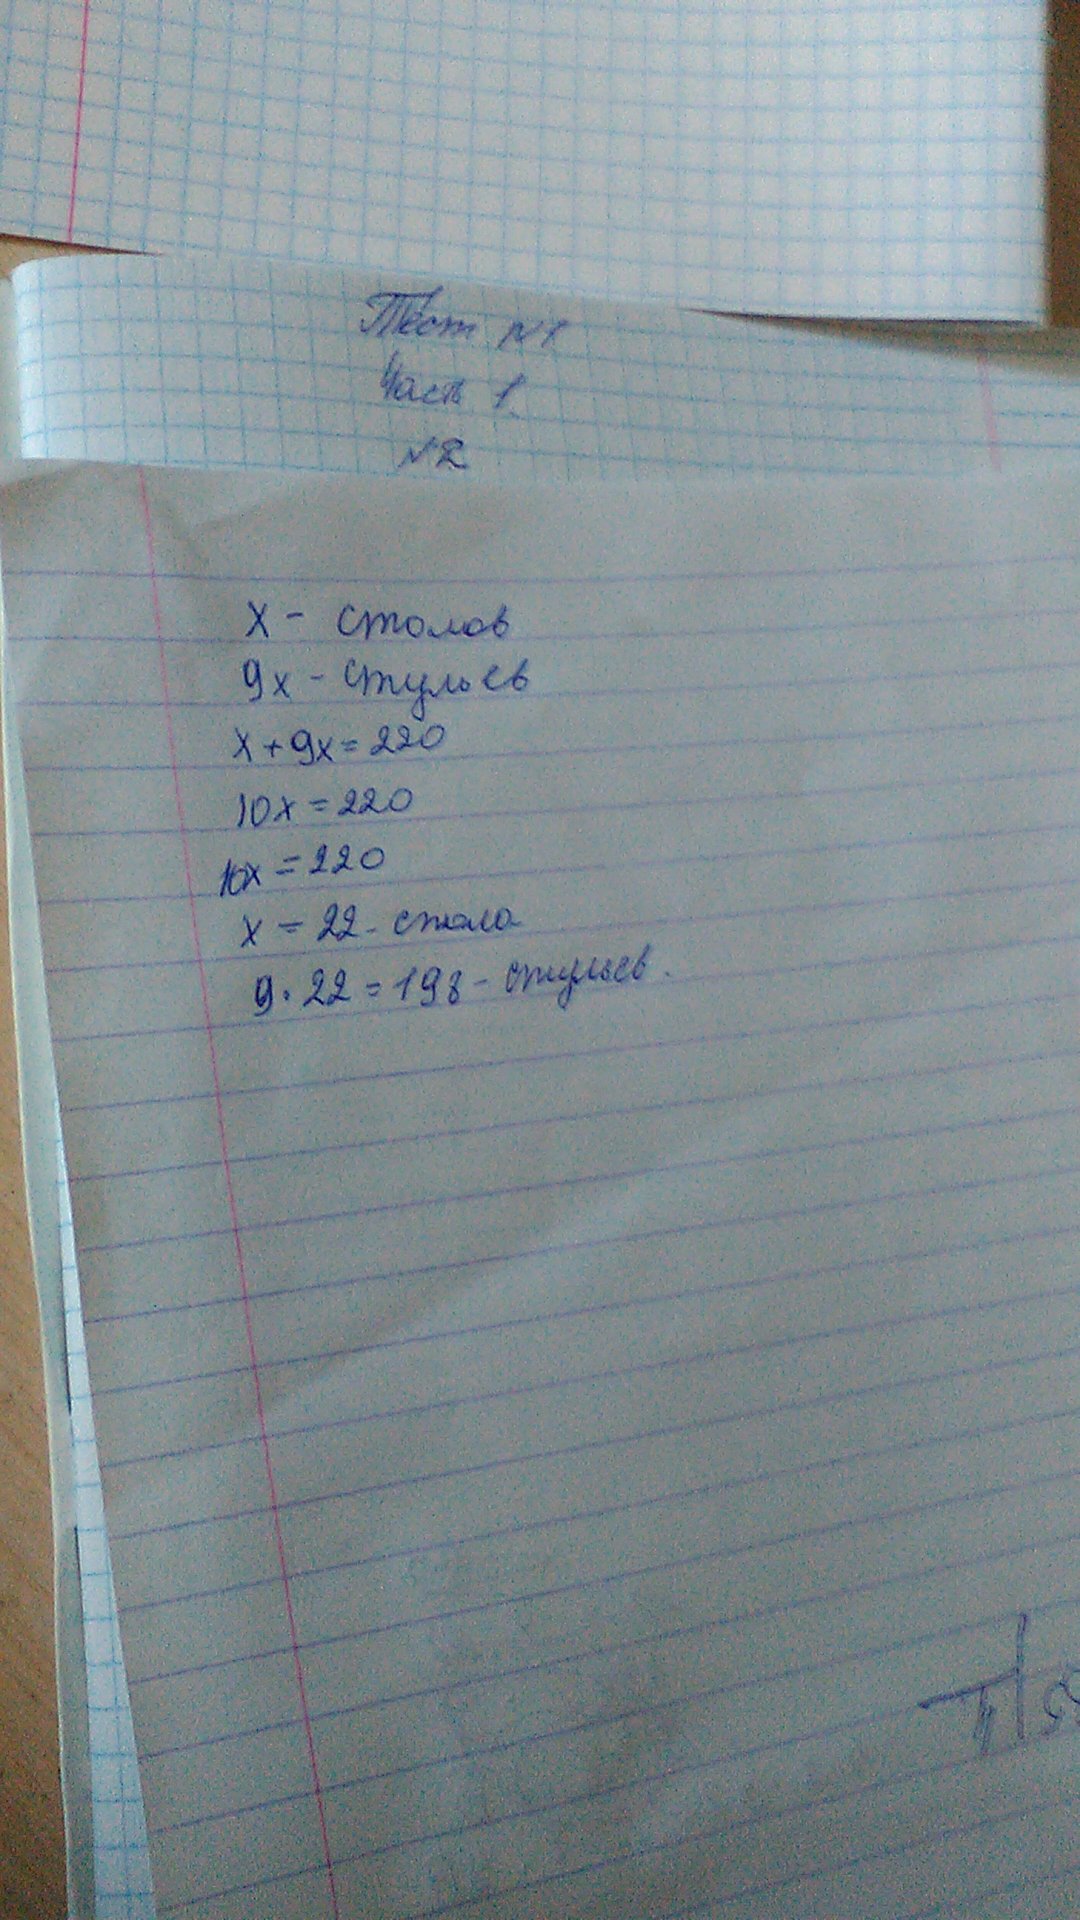 Тест №1
Часть 1.
№2
x - столов
9x - стульев
x + 9x = 220
10x = 220
10x = 220
x = 22 - стола
9 · 22 = 198 - стульев.